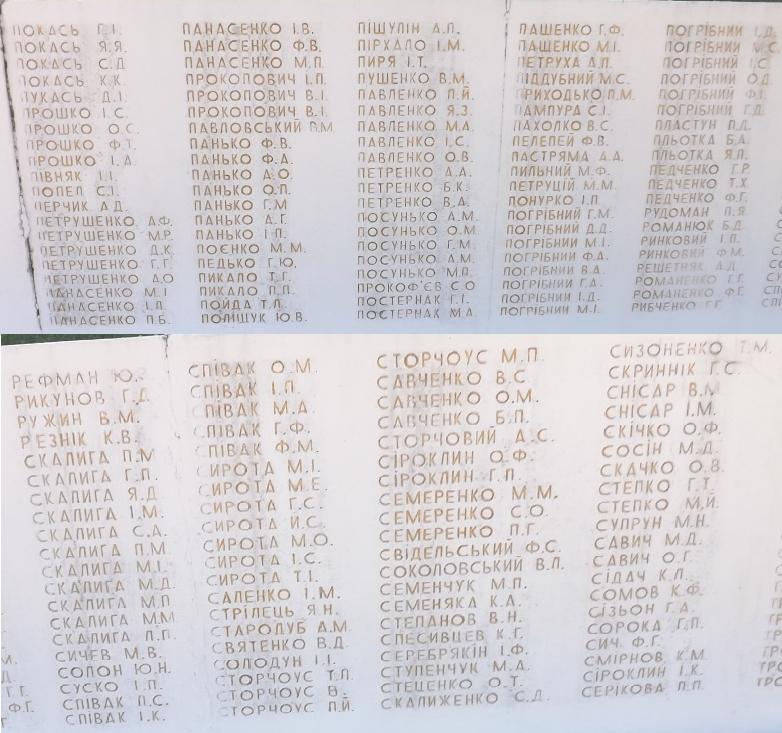 ПОКАСЬ Г.І.
ПОКАСЬ Я.Я.
ПОКАСЬ С.Д
ПОКАСЬ К.К.
ЛУКАСЬ Д.І.
ПРОШКО І.С.
ПРОШКО О.С.
ПРОШКО Ф.Т.
ПРОШКО І.А
ПІВНЯК І.І.
ПОПЕЛ С.І.
ПЕРЧИК А.Д.
ПЕТРУШЕНКО А.Ф.
ПЕТРУШЕНКО М.Р.
ПЕТРУШЕНКО Д.К
ПЕТРУШЕНКО Г.Г.
ПЕТРУШЕНКО А.О
ПАНАСЕНКО М.І
ПАНАСЕНКО І.П.
ПАНАСЕНКО П.Б.
ПАНАСЕНКО І.В.
ПАНАСЕНКО Ф.В.
ПАНАСЕНКО М.П.
ПРОКОПОВИЧ І.П.
ПРОКОПОВИЧ В.І.
ПРОКОПОВИЧ В.І.
ПАВЛОВСЬКИЙ В.М
ПАНЬКО Ф.В.
ПАНЬКО Ф.А.
ПАНЬКО А.О.
ПАНЬКО О.П.
ПАНЬКО Г.М
ПАНЬКО А.Г.
ПАНЬКО І.П.
ПОЄНКО М.М.
ПЕДЬКО Г.Ю.
ПИКАЛО Т.Г.
ПИКАЛО П.П.
ПОЙДА Т.П.
ПОЛІЩУК Ю.В.
ПІШУЛІН А.П.
ПІРХАЛО І.М.
ПИРЯ І.Т.
ПУШЕНКО В.М.
ПАВЛЕНКО П.Й.
ПАВЛЕНКО Я.З.
ПАВЛЕНКО М.А.
ПАВЛЕНКО І.С.
ПАВЛЕНКО О.В.
ПЕТРЕНКО А.А.
ПЕТРЕНКО Б.К.
ПЕТРЕНКО В.А.
ПОСУНЬКО А.М.
ПОСУНЬКО О.М.
ПОСУНЬКО Г.М.
ПОСУНЬКО А.М.
ПОСУНЬКО М.П.
ПРОКОФ'ЄВ С.О
ПОСТЕРНАК Г.І.
ПОСТЕРНАК М.А.
ПАШЕНКО Г.Ф.
ПАШЕНКО М.І.
ПЕТРУХА А.П.
ПІДДУБНИЙ М.С.
ПРИХОДЬКО П.М.
ПАМПУРА С.І.
ПАХОЛКО В.С.
ПЕЛЕПЕЙ Ф.В.
ПАСТРЯМА А.А.
ПИЛЬНИЙ М.Ф.
ПЕТРУЦІЙ М.М.
ПОНУРКО І.П
ПОГРІБНИЙ Г.М.
ПОГРІБНИЙ Д.Д.
ПОГРІБНИЙ М.І.
ПОГРІБНИЙ Ф.А.
ПОГРІБНИЙ В.А.
ПОГРІБНИЙ Г.А.
ПОГРІБНИЙ І.Д.
ПОГРІБНИЙ М.І.
ПОГРІБНИЙ І.Д.
ПОГРІБНИЙ М.С.
ПОГРІБНИЙ І.С
ПОГРІБНИЙ О.Д
ПОГРІБНИЙ Ф.І.
ПОГРІБНИЙ Г.Д.
ПЛАСТУН П.Д.
ПЛЬОТКА Б.А.
ПЛЬОТКА Я.П.
ПЕДЧЕНКО Г.Р.
ПЕДЧЕНКО Т.Х.
ПЕДЧЕНКО Ф.Г.
РУДОМАН П.Я.
РОМАНЮК Б.Д.
РИНКОВИЙ І.П.
РИНКОВИЙ Ф.М.
РЕШЕТНЯК А.Д.
РОМАНЕНКО Г.Г.
РОМАНЕНКО Ф.Г.
РИБЧЕНКО Г.Г.
РЕФМАН Ю.
РИКУНОВ Г.Д.
РУЖИН В.М.
РЕЗНІК К.В.
СКАПИГА П.М
СКАПИГА Г.П.
СКАПИГА Я.Д
СКАПИГА І.М.
СКАПИГА С.А.
СКАПИГА П.М.
СКАПИГА М.І.
СКАПИГА М.Д.
СКАПИГА М.П
СКАПИГА М.М
СКАПИГА П.П.
СИЧЕВ М.В.
СОЛОН Ю.Н.
СУСКО І.П.
СПІВАК П.С.
СПІВАК І.К.
СПІВАК О.М.
СПІВАК І.П.
СПІВАК М.А.
СПІВАК Г.Ф.
СПІВАК Ф.М.
СИРОТА М.І.
СИРОТА М.Е.
СИРОТА Г.С.
СИРОТА Й.С.
СИРОТА М.О.
СИРОТА І.С.
СИРОТА Т.І.
САЛЕНКО І.М.
СТРІЛЕЦЬ Я.Н.
СТАРОДУБ А.М.
СВЯТЕНКО В.Д.
СОЛОДУН І.І.
СТОРЧОУС Т.П.
СТОРЧОУС В.
СТОРЧОУС П.Й.
СТОРЧОУС М.П.
САВЧЕНКО В.С.
САВЧЕНКО О.М.
САВЧЕНКО Б.П.
СТОРЧОВИЙ А.С.
СІРОКЛИН О.Ф.
СІРОКЛИН Г.П.
СЕМЕРЕНКО М.М.
СЕМЕРЕНКО С.О.
СЕМЕРЕНКО П.Г.
СВІДЕЛЬСЬКИЙ Ф.С.
СОКОЛОВСЬКИЙ В.П.
СЕМЕНЧУК М.П.
СЕМЕНЯКА К.А.
СТЕПАНОВ В.Н.
СПЕСИВЦЕВ К.Г.
СЕРЕБРЯКІН І.Ф.
СТУПЕНЧУК М.А.
СТЕЦЕНКО О.Т.
СКАЛИЖЕНКО С.Д.
СИЗОНЕНКО Т.М.
СКРИННІК Г.С.
СНІСАР В.М
СНІСАР І.М.
СКІЧКО О.Ф.
СОСІН М.Д.
СКАЧКО О.В.
СТЕПКО Г.Т.
СТЕПКО М.Й.
СУПРУН М.Н.
САВИЧ М.Д.
САВИЧ О.Г.
СІДАЧ К.Л.
СОМОВ К.Ф.
СІЗЬОН Г.А.
СОРОКА Г.П.
СИЧ Ф.Г.
СМІРНОВ К.М.
СІРОКЛИН І.К.
СЕРІКОВА П.П.